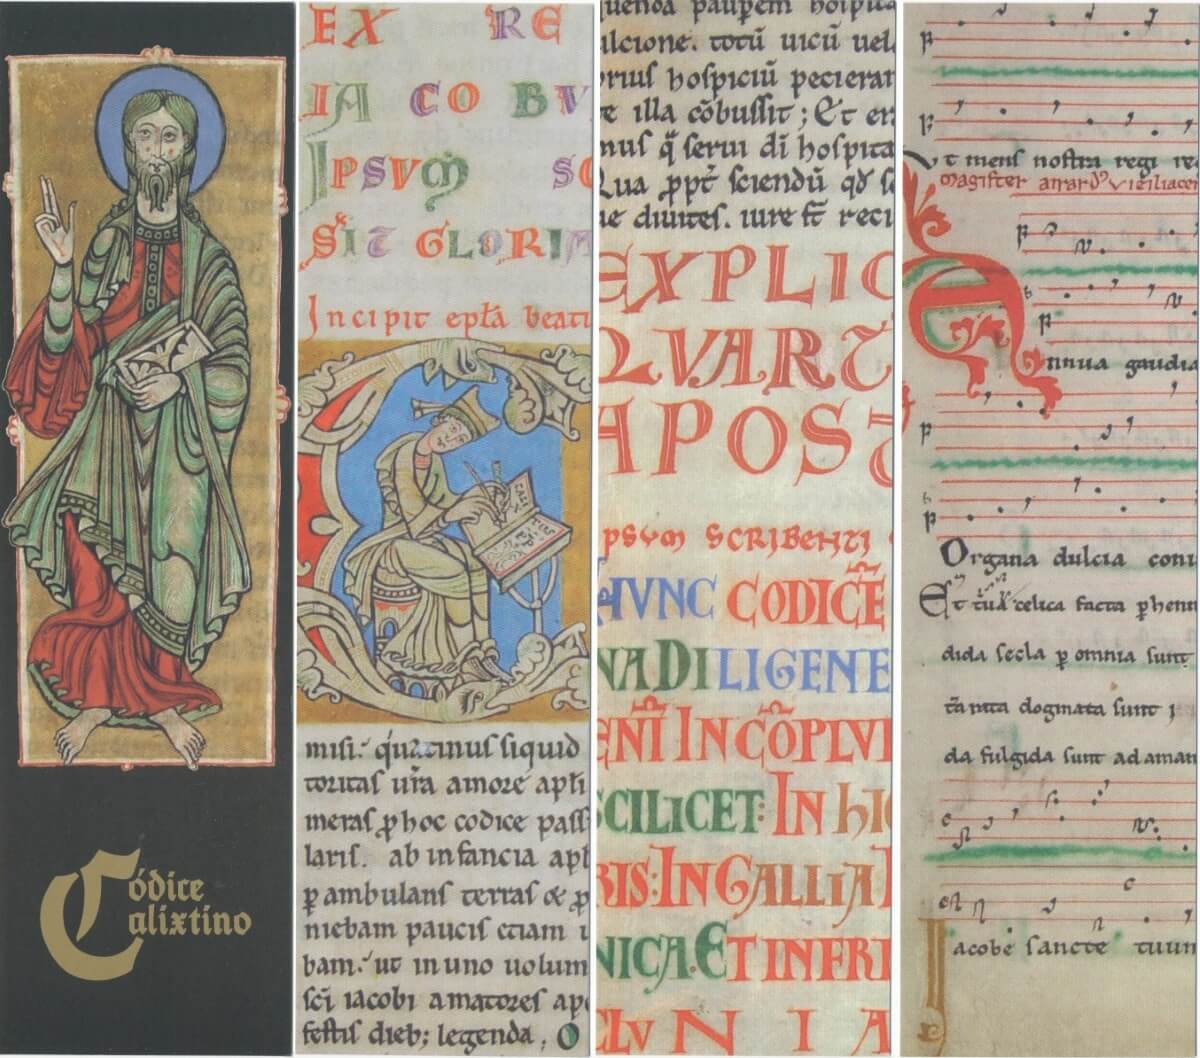 Códice
Calixtino
EX RE
IACOBV
IPSVM SC
SIT GLORIA
Incipit epła beati
misi. quatinus siquid
toritas ura amore apli
meras p hoc codice pass
laris. ab infancia apl
pambulans terras & p
niebam paucis etiam
bam. ut in uno uolum
sci iacobi amatores ape
festis dieb; legenda. O
pauperem hospita
ulcione. totū uicū uel
prius hospiciū pecierat
illa cōbussit; Et
nus q serui di hospita
Qua ppt sciendū qd
diuites. iure
EXPLIC
QVART
APOST
IPSVM SCRIBENTI
HVNC CODICĒ
NA DILIGENE
ENTI IN CŌPLVI
SCILICET: IN HI
RIS: IN GALLIA
NICA. ET IN FRI
CLVNIA
Vt mens nostra regi re
Magister
Annua gaudia
Organa dulcia coni
Et celica facta phenn
dida secla p omnia sunt
dogmata sunt
da fulgida sunt adaman
Iacobe sancte tuum